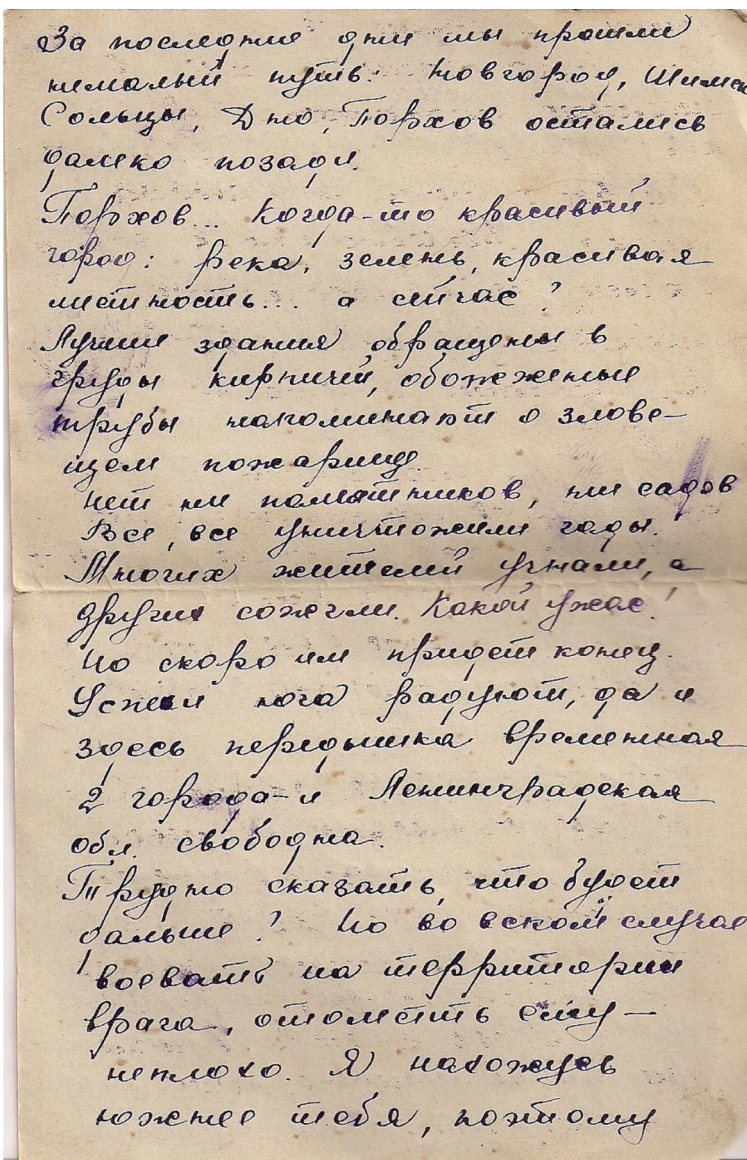 За последние дни мы прошли
немалый путь: Новгород, Шимск
Сольцы, Дно, Порхов остались
далеко позади.
Порхов... Когда-то красивый
город: река, зелень, красивая
местность... а сейчас?
Лучшие здания обращены в
груды кирпичей, обожженные
трубы напоминают о злове-
щем пожарище.
Нет ни памятников, ни садов
Все, все уничтожили гады.
Многих жителей угнали, а
других сожгли. Какой ужас!
Но скоро им придет конец.
Успехи юга радуют, да и
здесь передышка временная
2 города-и Ленинградская
обл. свободна.
Трудно сказать, что будет
дальше? Но во вском случае
воевать на территории
врага, отомстить ему —
неплохо. Я нахожусь
южнее тебя, поэтому